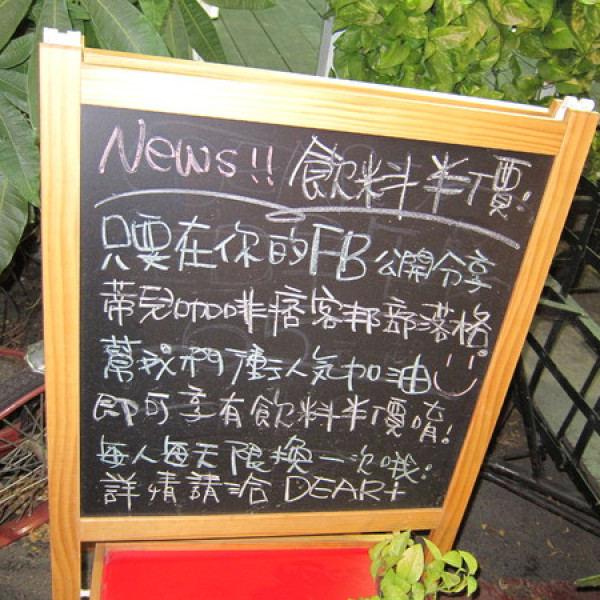 News!! 飲料半價!
只要在你的FB公開分享
蒂兒咖啡痞客邦部落格
幫我們衝人氣加油
即可享有飲料半價唷!
每人每天限換一次哦!
詳情請洽 DEAR+